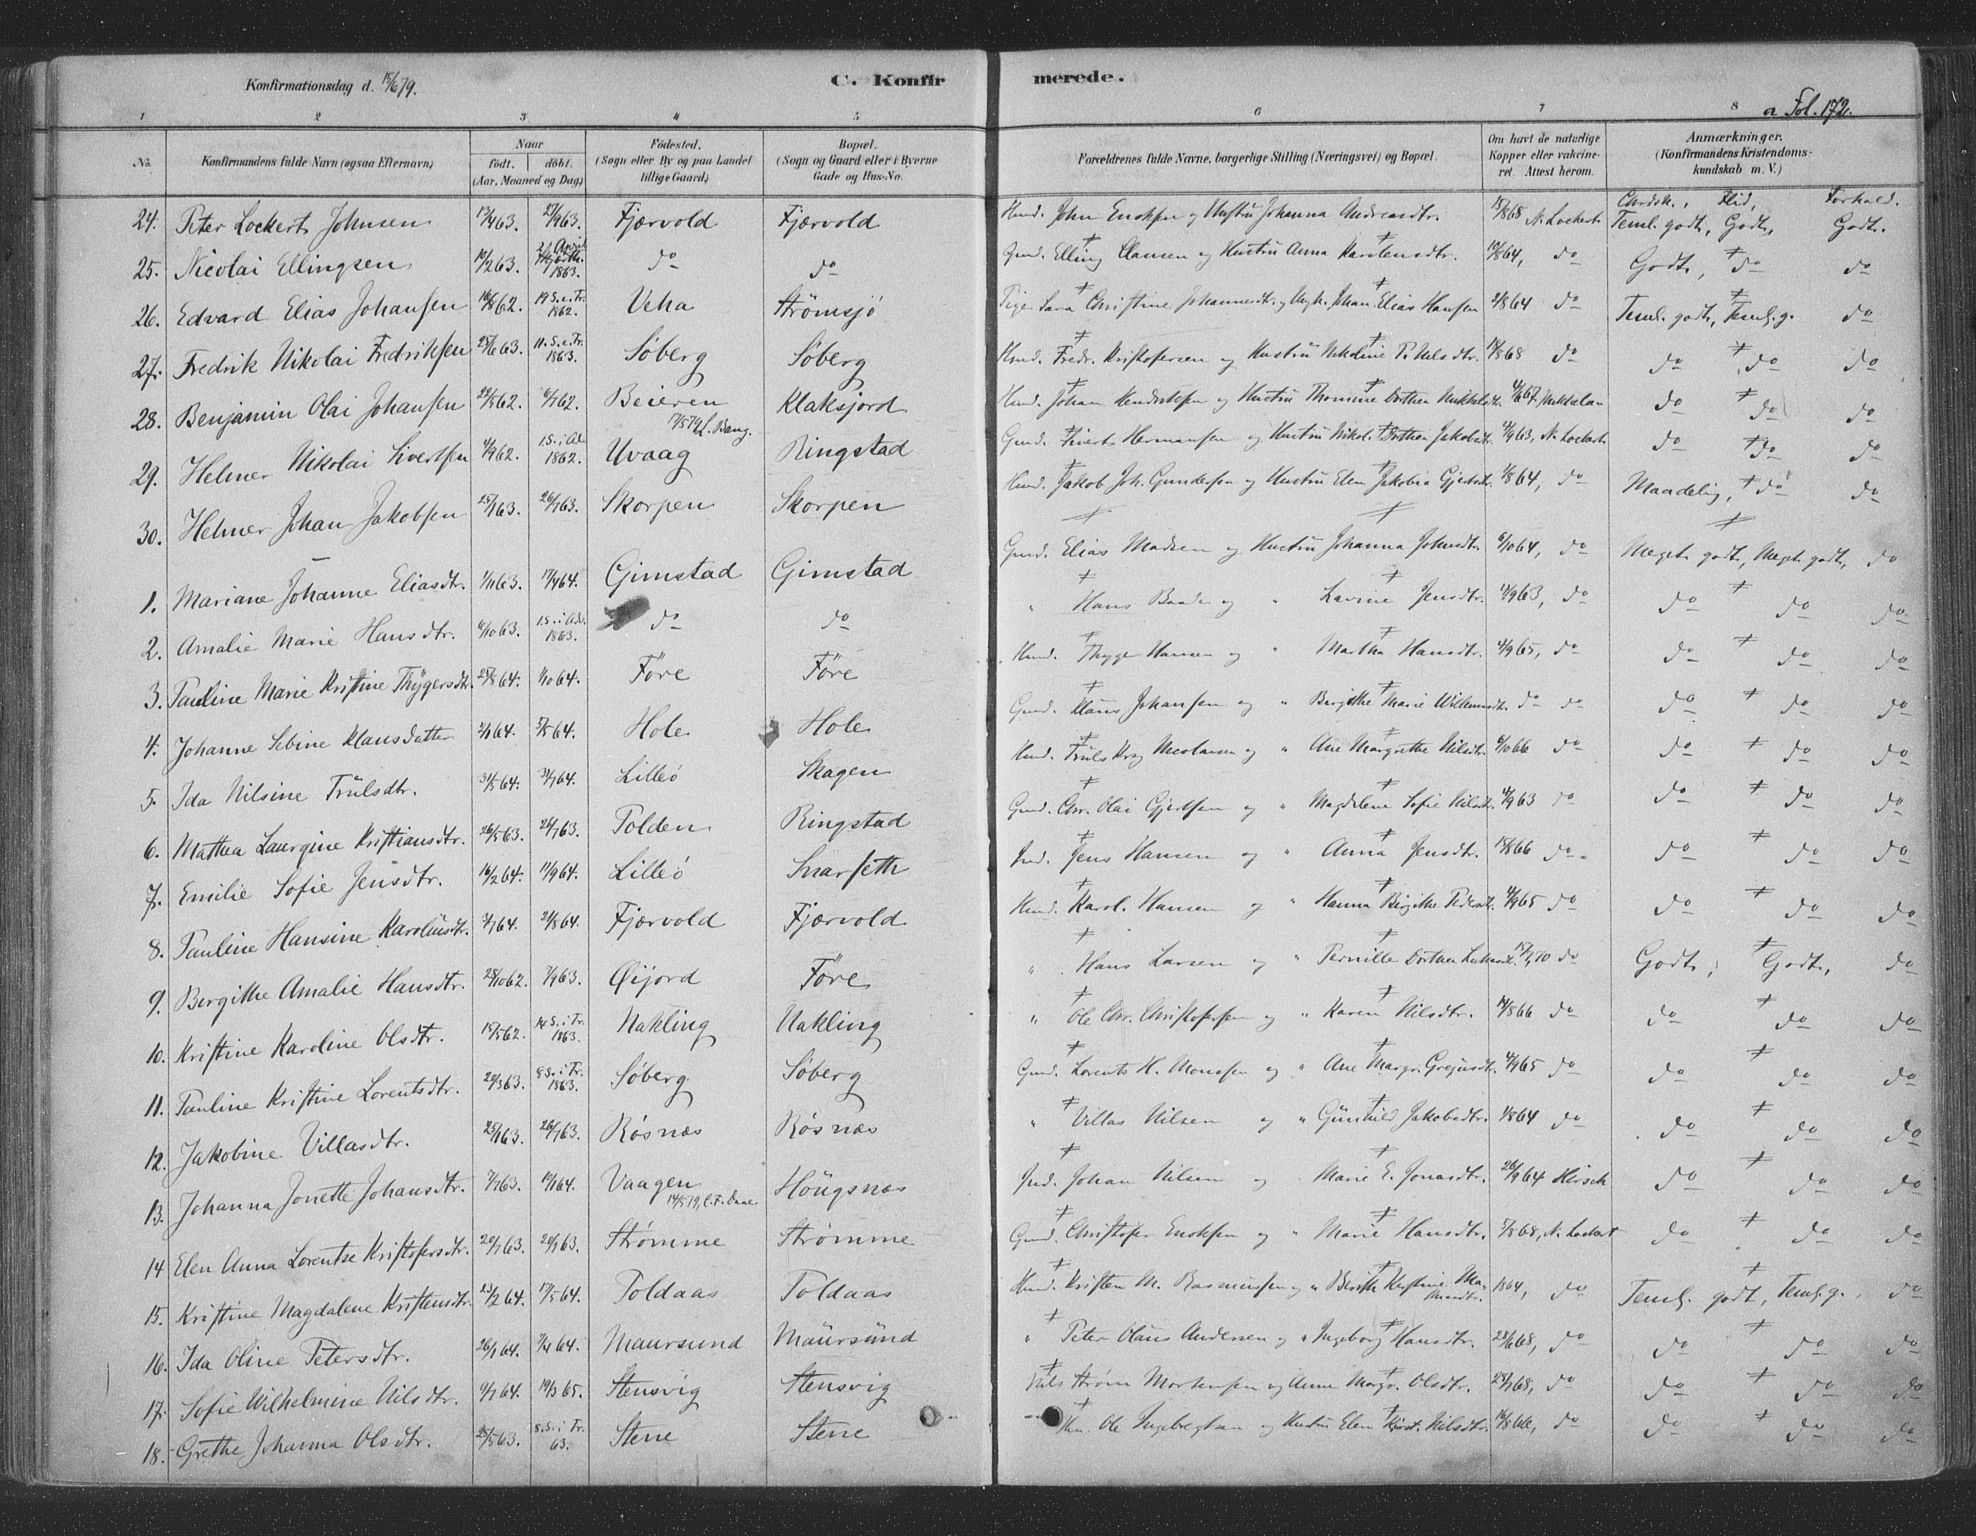 Konfirmationsdag d. 15/6 79. C. Konfirmerede. a Fol. 172.
1 2 3 4 5 6 7 8
No. Konfirmandens fulde Navn (ogsaa Efternavn) Naar født. døbt. (Aar, Maaned og Dag) Fødested. (Sogn eller By og paa Landet tillige Gaard) Bopæl. (Sogn og Gaard eller i Byerne Gade og Hus-No. Forældrenes fulde Navne, borgerlige Stilling (Næringsvei) og Bopæl. Om havt de naturlige Kopper eller vakcineret. Attest herom. Anmærkninger. (Konfirmandens Kristendomskundskab m. V.)
Chrdsk., Flid, Forhold.
24. Peter Lockert Johnsen 13/4 63. 27/9 63. Fjærvold Fjærvold John Enoksen og Hustru Johanna Andreasdtr. 15/8 68 N. Lockert Teml. godt, Godt, Godt.
25. Nicolai Ellingsen 10/2 63. 1863. do do Elling Clausen og Hustru Anna Karstensdtr. 10/8 64, do Godt, do do
26. Edvard Elias Johansen 16/8 62. 19 S. e. Tr. 1862. Veha Strømsjö Pige Sara Christine Johannesdtr. og Ungk. Johan Elias Hansen 2/8 64 do Teml. godt, Teml. g. do
27. Fredrik Nikolai Fredriksen 25/6 63. 11. S. e. Tr. 1863. Søberg Søberg Hmd. Fredr. Kristofersen og Hustru Nikoline P. Nilsdtr. 14/8 68 do do do do
28. Benjamin Olai Johansen 22/5 62. 6/7 62. Beieren 17/5 79 L. Bang. Klaksjord Hmd. Johan Hendriksen og Hustru Thomine Dorthea 4/6 67, do do do
29. Helmer Nikolai Sivertsen 4/9 62. 1. S. i Adv. 1862. Uvaag Ringstad Gmd. Sivert Hermansen og Hustru Nikol. Dorthea Jakobsdtr. 4/9 63, N. Lockert do do do
30. Helmer Johan Jakobsen 25/1 63. 26/7 63. Skorpen Skorpen Hmd. Jakob Joh. Gundersen og Hustru Elen Jakobia Gjertsdtr. 1/8 64, do Maadelig, do do
1. Mariane Johanne Eliasdtr. 1/11 63. 17/4 64. Gimstad Gimstad Gmd. Elias Madsen og Hustru Johanna Johnsdtr. 6/10 64, do Meget godt, Meget godt, do
2. Amalie Marie Hansdtr. 6/10 63. 1. S. i Adv. 1863. do do " Hans Baade og " Lavine Jensdtr. 4/9 63, do do do do
3. Pauline Marie Kristine Thygersdtr. 25/8 64. 1/10 64. Føre Føre Hmd. Thyge Hansen og " Martha Hansdtr. 4/9 65, do do do do
4. Johanne Sebine Klausdatter 2/1 64. 5/5 64. Hole Hole Gmd. Klaus Johansen og " Bergithe Marie Willumsdtr. do do do do do
5. Ida Nilsine Trülsdtr. 31/5 64. 31/7 64. Lilleö Skagen Hmd. Truls Krog Nicolaisen og " Ane Margrethe Nilsdtr. 6/10 66 do do do do
6. Mathea Laurgine Kristiansdtr. 26/5 63. 24/7 63. Tolden Ringstad Gmd. Chr. Olai Gjertsen og " Magdalene Sofie Nilsdtr. 4/9 63 do do do do
7. Emilie Sofie Jensdtr. 16/2 64. 11/9 64. Lilleö Snarseth Ind. Jens Hansen og " Anna Jensdtr. 15/8 66 do do do do
8. Pauline Hansine Karolusdtr. 3/7 64. 21/8 64. Fjærvold Fjærvold Hmd. Karol. Hansen og " Hanna Birgithe Pedersdtr. 4/9 65 do do do do
9. Bergithe Amalie Hansdtr. 28/10 62. 7/9 63. Øijord Føre " Hans Larsen og " Pernille Dorthea 17/7 70 do Godt, Godt, do
10. Kristine Karoline Olsdtr. 15/5 62. 14. S. i Tr. 1863. Nakling Nakling " Ole Chr. Christofersen og " Karen Nilsdtr. 14/8 66 do do do do
11. Pauline Kristine Lorentsdtr. 20/3 63. 8 S. i Tr. 1863. Søberg Søberg Gmd. Lorents H. Monssen og " Ane Margr. Gregusdtr. 4/9 65 do do do do
12. Jakobine Villasdtr. 25/1 63. 26/7 63. Røsnæs Røsnæs " Villas Nilsen og " Günhild Jakobsdtr. 1/8 64 do do do do
13. Johanna Jonette Johansdtr. 7/7 63. 10/1 64. Vaagen 14/5 79, C. F. Daae Höugsnæs Ind. Johan Nilsen og Marie E. Jonasdtr. 26/9 64 Hirsch do do do
14 Elen Anna Lorentze Kristofersdtr. 20/7 63. 20/9 63. Strømme Strømme Gmd. Christofer Enoksen og " Marie Hansdtr. 5/8 68, N. Lockert do do do
15. Kristine Magdalene Kristensdtr. 23/2 64. 17/5 64. Toldaas Toldaas Hmd. Kristen M. Rasmussen og " Berith Kristine 1864, do Teml. godt, Teml. g. do
16. Ida Oline Petersdtr. 26/1 64. 3/4 64. Maursund Maursund " Peter Olaus Andersen og " Ingeborg Hansdtr. 28/6 68, do do do do
17. Sofie Wilhelmine Nilsdtr. 9/7 64. 19/3 65. Stensvig Stensvig Nils Strøm Mortensen og Anne Margr. Olsdtr. 25/7 68, do do do do
18. Grethe Johanna Olsdtr. 25/5 63. 8. S. i Tr. 63. Stene Stene Hm. Ole Ingebregtsen og Hustru Elen Kirst. Nilsdtr. 14/8 66, do do do do